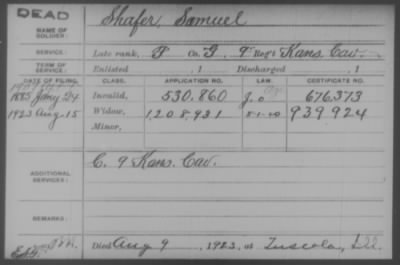 DEAD
NAME OF SOLDIER: Shafer, Samuel
SERVICE: Late rank, P Co. G, 9" Reg't Kans. Cav.
TERM OF SERVICE: Enlisted , 1 Discharged , 1
DATE OF FILING. CLASS. APPLICATION NO. LAW. CERTIFICATE NO.
1885 Jany 24 Invalid, 530.860 J.O 676.373
1923 Aug-15 Widow, 1,208,931 5-1-20 939924
Minor,
ADDITIONAL SERVICES: C. 9 Kans. Cav.
REMARKS:
Died Aug 9, 1923, at Tuscola, Ill.